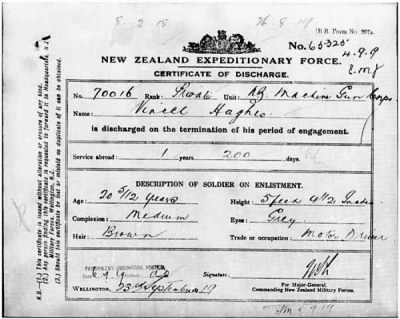 No. 65325
NEW ZEALAND EXPEDITIONARY FORCE.
CERTIFICATE OF DISCHARGE.
No. 70016 Rank: Private Unit: NZ Machine Gun Corps
Name: Hughes
is discharged on the termination of his period of engagement.
Service abroad: 1 years 200 days.
DESCRIPTION OF SOLDIER ON ENLISTMENT.
Age: 20 5/12 years Height: 5 feed 4 1/2 Inches
Complexion: Medium Eyes: Grey
Hair: Brown Trade or occupation: Motor Driver
Signature:
WELLINGTON, 23rd September 19
For Major-General,
Commanding New Zealand Military Forces.
N.B.—(1.) This certificate is issued without alteration or erasure of any kind.
(2.) Any person finding this certificate is requested to forward it to Headquarters, N.Z.
Military Forces, Wellington, N.Z.
(3.) Should this certificate be lost or mislaid no duplicate of it can be obtained.